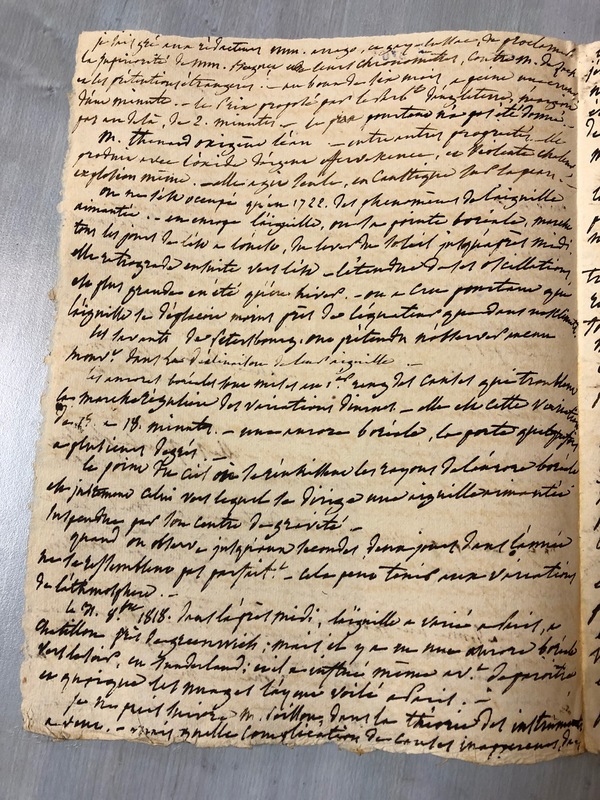 je sais gré aux rédacteurs mm. arago, et gay-lussac, de proclamer
la supériorité de mm. Breguet et leurs chronomètres, contre m. de
et les prétentions étrangères. - au bout de six mois, a peine une erreur
d'une minute. - le prix proposé par le d'angleterre,
pas au delà, de 2. minutes - le prix pourtant n'a pas été donné. -
m. Thenard oxigène l'eau - entre autres propriétés elle
produit avec l'oxide d'argent effervescence, et violente chaleur
explosion même. - elle agit seule, en caustique sur la peau. -
on ne s'est occupé qu'en 1722. des phénomènes de l'aiguille
aimantée. - en europe l'aiguille, ou sa pointe boréale, marche
tous les jours de l'est a l'ouest, du lever du soleil jusqu'après midi
elle retrograde ensuite vers l'est - l'étendue de ses oscillations,
est plus grande en été qu'en hiver. - on a cru pourtant que
l'aiguille se déplaçoit moins près de l'équateur que dans nos climats,
les savants de Petersbourg, ont prétendu n'observer aucun
mouvt. dans la déclinaison de leur aiguille -
les aurores boréales sont mises au 1er. rang des causes qui troublent
la marche régulière des variations diurnes - elle est cette variation
de a 18. minutes. - une aurore boréale, la porte quelquefois
a plusieurs degrés. -
le point du ciel où se réunissent les rayons de l'aurore boréale
est justement celui vers lequel se dirige une aiguille aimantée
suspendue par son centre de gravité -
quand on observe jusqu'aux secondes deux jours dans l'année
ne se ressemblent pas parfaitt. - cela peut tenir aux variations
de l'athmosphère. -
le 31. 1818. dans l'après midi, l'aiguille a varié a Paris, a
chatillon près de greenwich; mais il y a eu une aurore boréale
vers le soir, en sunderland; et il a influé même avt. de paroitre
et quoique les nuages l'ayent voilé a Paris. -
je ne puis suivre m. dans la théorie des instruments
a vent. - mais quelle complication de causes inapperçues, dans